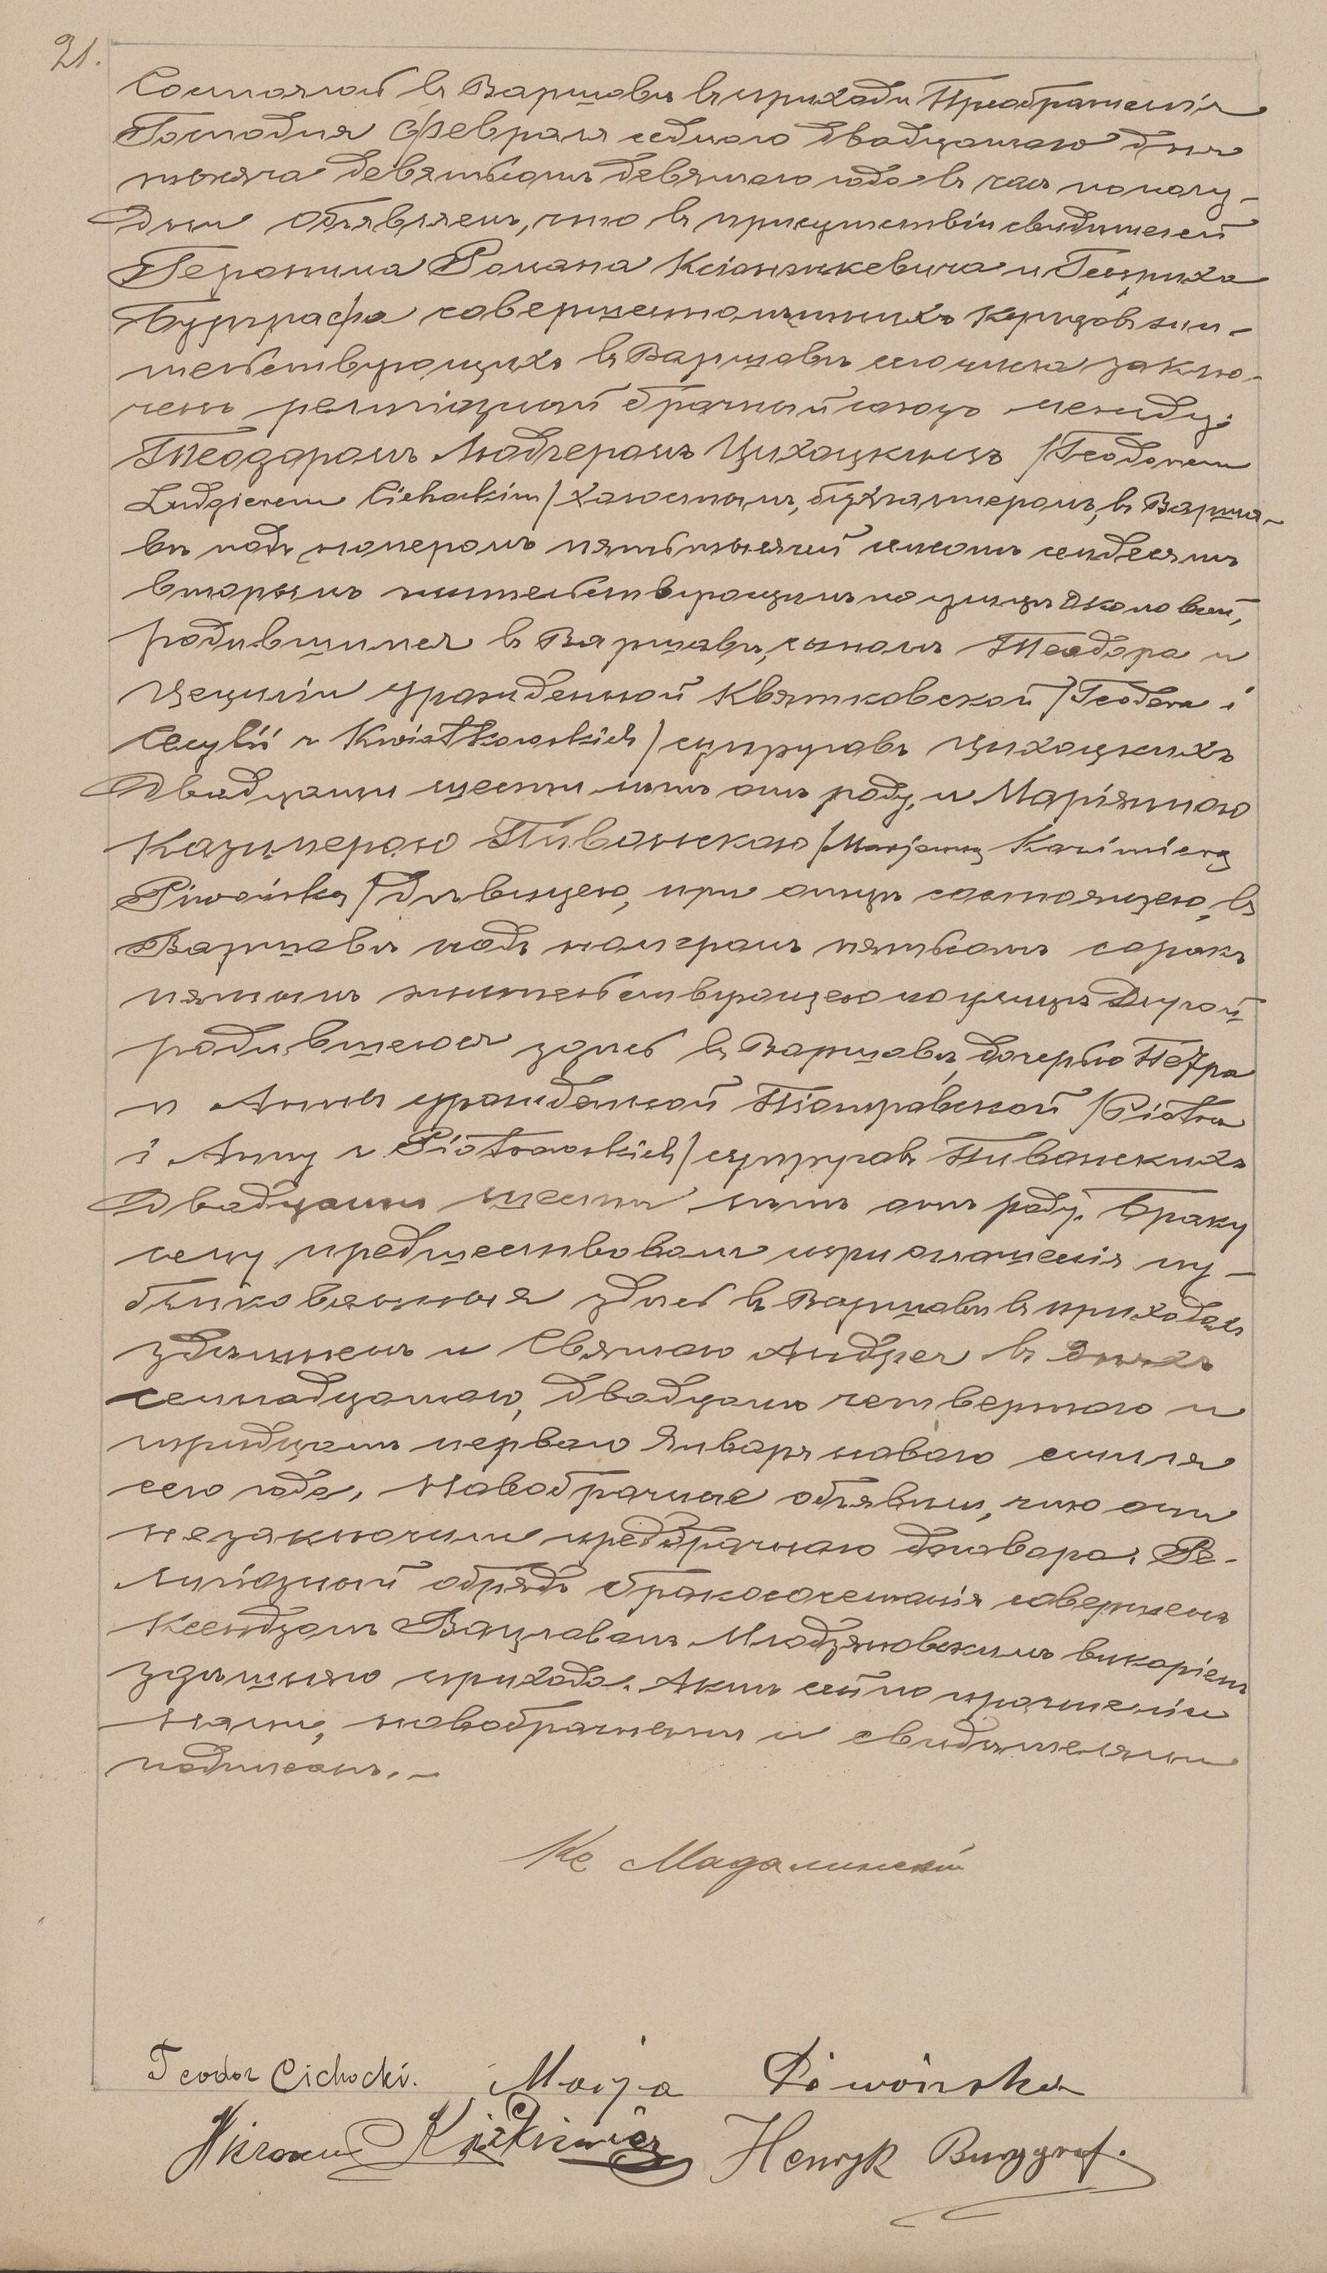 21.
Состоялось въ Варшавѣ въ приходѣ Преображенія
Господня Февраля седьмого двадцатаго дня
тысяча девятьсотъ девятаго года въ часъ пополу-
дни Объявляемъ, что въ присутствіи свидѣтелей
Геронима Романа Ксіонжкевича и Генриха
Бургграфа совершеннолѣтнихъ жи-
тельствующихъ въ Варшавѣ сего числа заклю-
ченъ религіозный брачный союзъ между:
Теодоромъ Людгеромъ Цихоцкимъ /Teodorem
Ludgierem Cichockim/ холостымъ, бухгалтеромъ, въ Варша-
вѣ подъ номеромъ пять тысячей семдесятъ
вторымъ жительствующимъ по улицѣ Околовей,
родившимся въ Варшавѣ, сыномъ Теодора и
Цециліи урожденной Квятковской /Teodora i
Cecylii z Kwiatkowskich/ супруговъ Цихоцкихъ
двадцати шести лѣтъ отъ роду, и Маріянною
Казимерою Пивонскою /Marjanną Kazimierą
Piwońską/ дѣвицею, при отцѣ состоящею, въ
Варшавѣ подъ номеромъ пятьсотъ сорокъ
пятымъ жительствующею по улицѣ Долгой
родившеюся здѣсь въ Варшавѣ, дочерью Петра
и Анны урожденной Піотровской /Piotra
i Anny z Piotrowskich/ супруговъ Пивонскихъ
двадцати шести лѣтъ отъ роду. Браку
сему предшествовали три оглашенія пу-
бликованныя здѣсь въ Варшавѣ въ приходахъ
здѣшнемъ и Святаго Андрея въ дняхъ
семнадцатаго, двадцать четвертаго и
тридцать перваго Января новаго стиля
сего года. Новобрачные объявили, что они
не заключили предбрачнаго договора. Ре-
лигіозный обрядъ бракосочетанія совершенъ
Ксендзомъ Вацлавомъ Млодзяновскимъ викаріемъ
здѣшняго прихода. Актъ сей по прочтеніи
нами, новобрачными и свидѣтелями
подписанъ. —
Кс Мадалинскій
Teodor Cichocki. Marja Piwońska
Hieronim Henryk Burggraf.